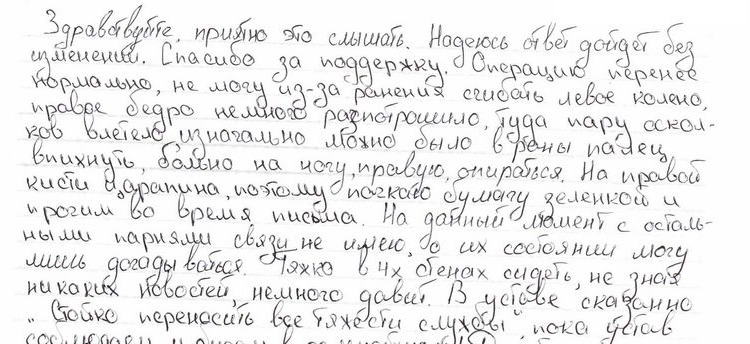 Здравствуйте, приятно это слышать. Надеюсь ответ дойдет без
изменений. Спасибо за поддержку. Операцию перенес
нормально, не могу из-за ранения сгибать левое колено,
правое бедро немного распотрошило, туда пару оскол-
ков влетело, изначально можно было в раны палец
впихнуть, больно на ногу, правую, опираться. На правой
кисти царапина, поэтому пачкаю бумагу зеленкой и
прочим во время письма. На данный момент с осталь-
ными парнями связи не имею, о их состоянии могу
лишь догадываться. Тяжко в 4х стенах сидеть, не зная
никаких новостей, немного давит. В уставе сказанно
"Стойко переносить все тяжести службы" пока устав